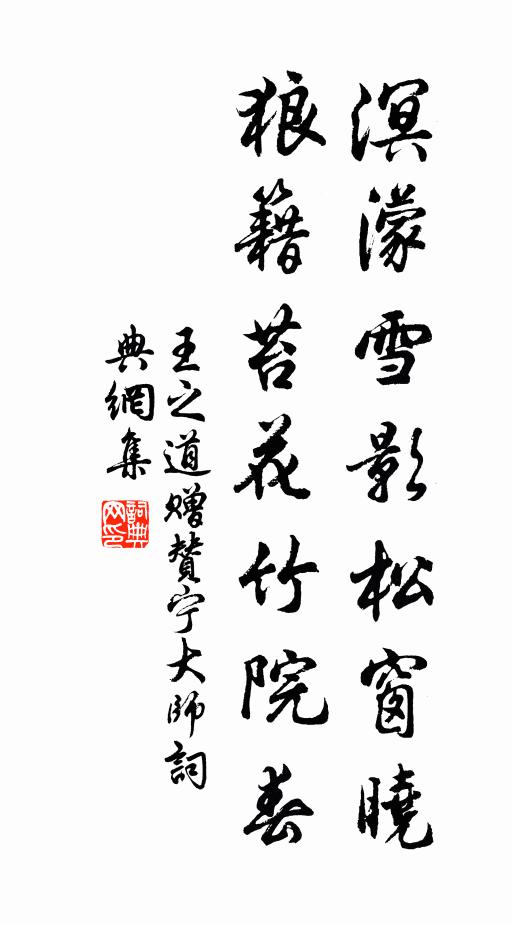 溟濛雪影松窗曉
狼籍苔花竹院春
王之道贈贊宁大師詞
典網集
詞典
网印